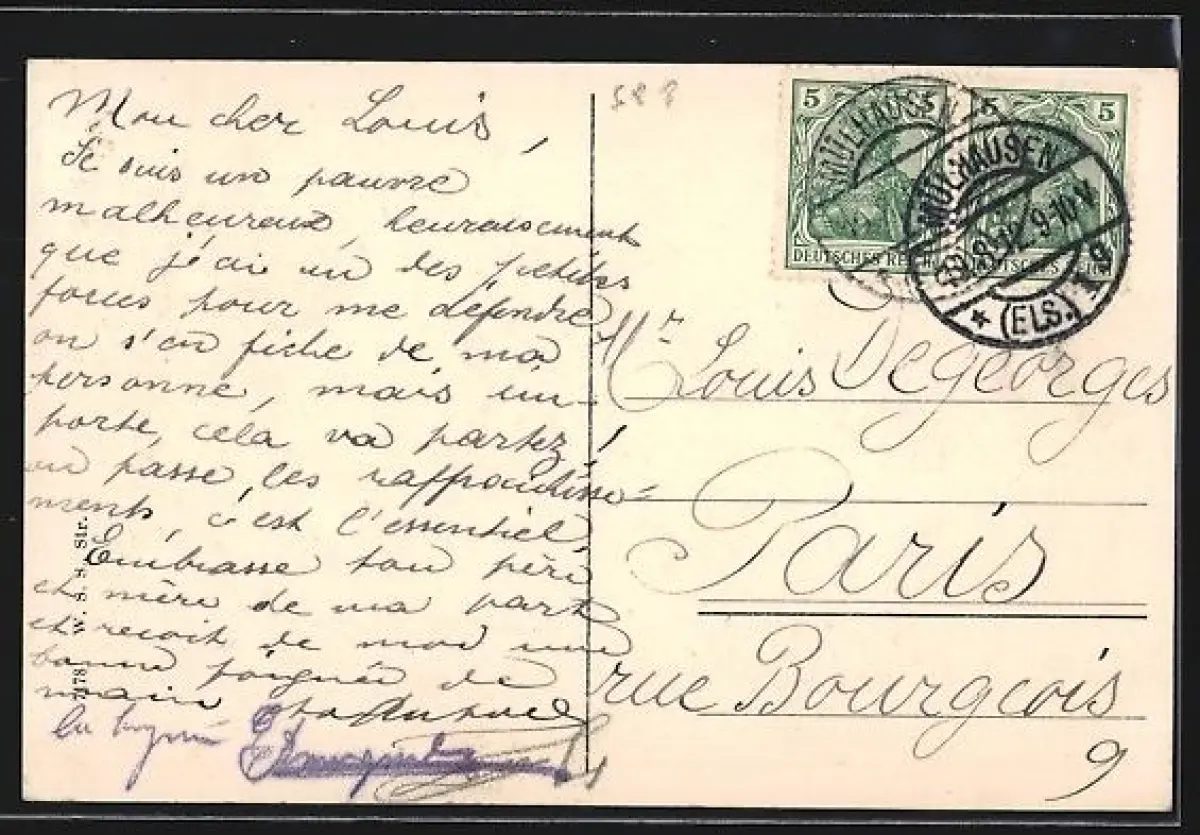 Mon cher Louis,
Je suis un pauvre
malheureux, heureusement
que j'ai un des petites
forces pour me défendre
on s'en fiche de ma
personne, mais im-
porte, cela va partez!
on passe les
ments, c'est l'essentiel,
Embrasse ton père
et mère de ma part
et reçoit de moi une
bonne poignée de
main
7178 W. s. s. Str.
588
5 5
5 5
DEUTSCHES REICH
DEUTSCHES REICH
MÜLHAUSEN
MÜLHAUSEN
9-10 V.
* (ELS.) 1 g
Mr Louis Degeorges
Paris
rue Bourgeois
9